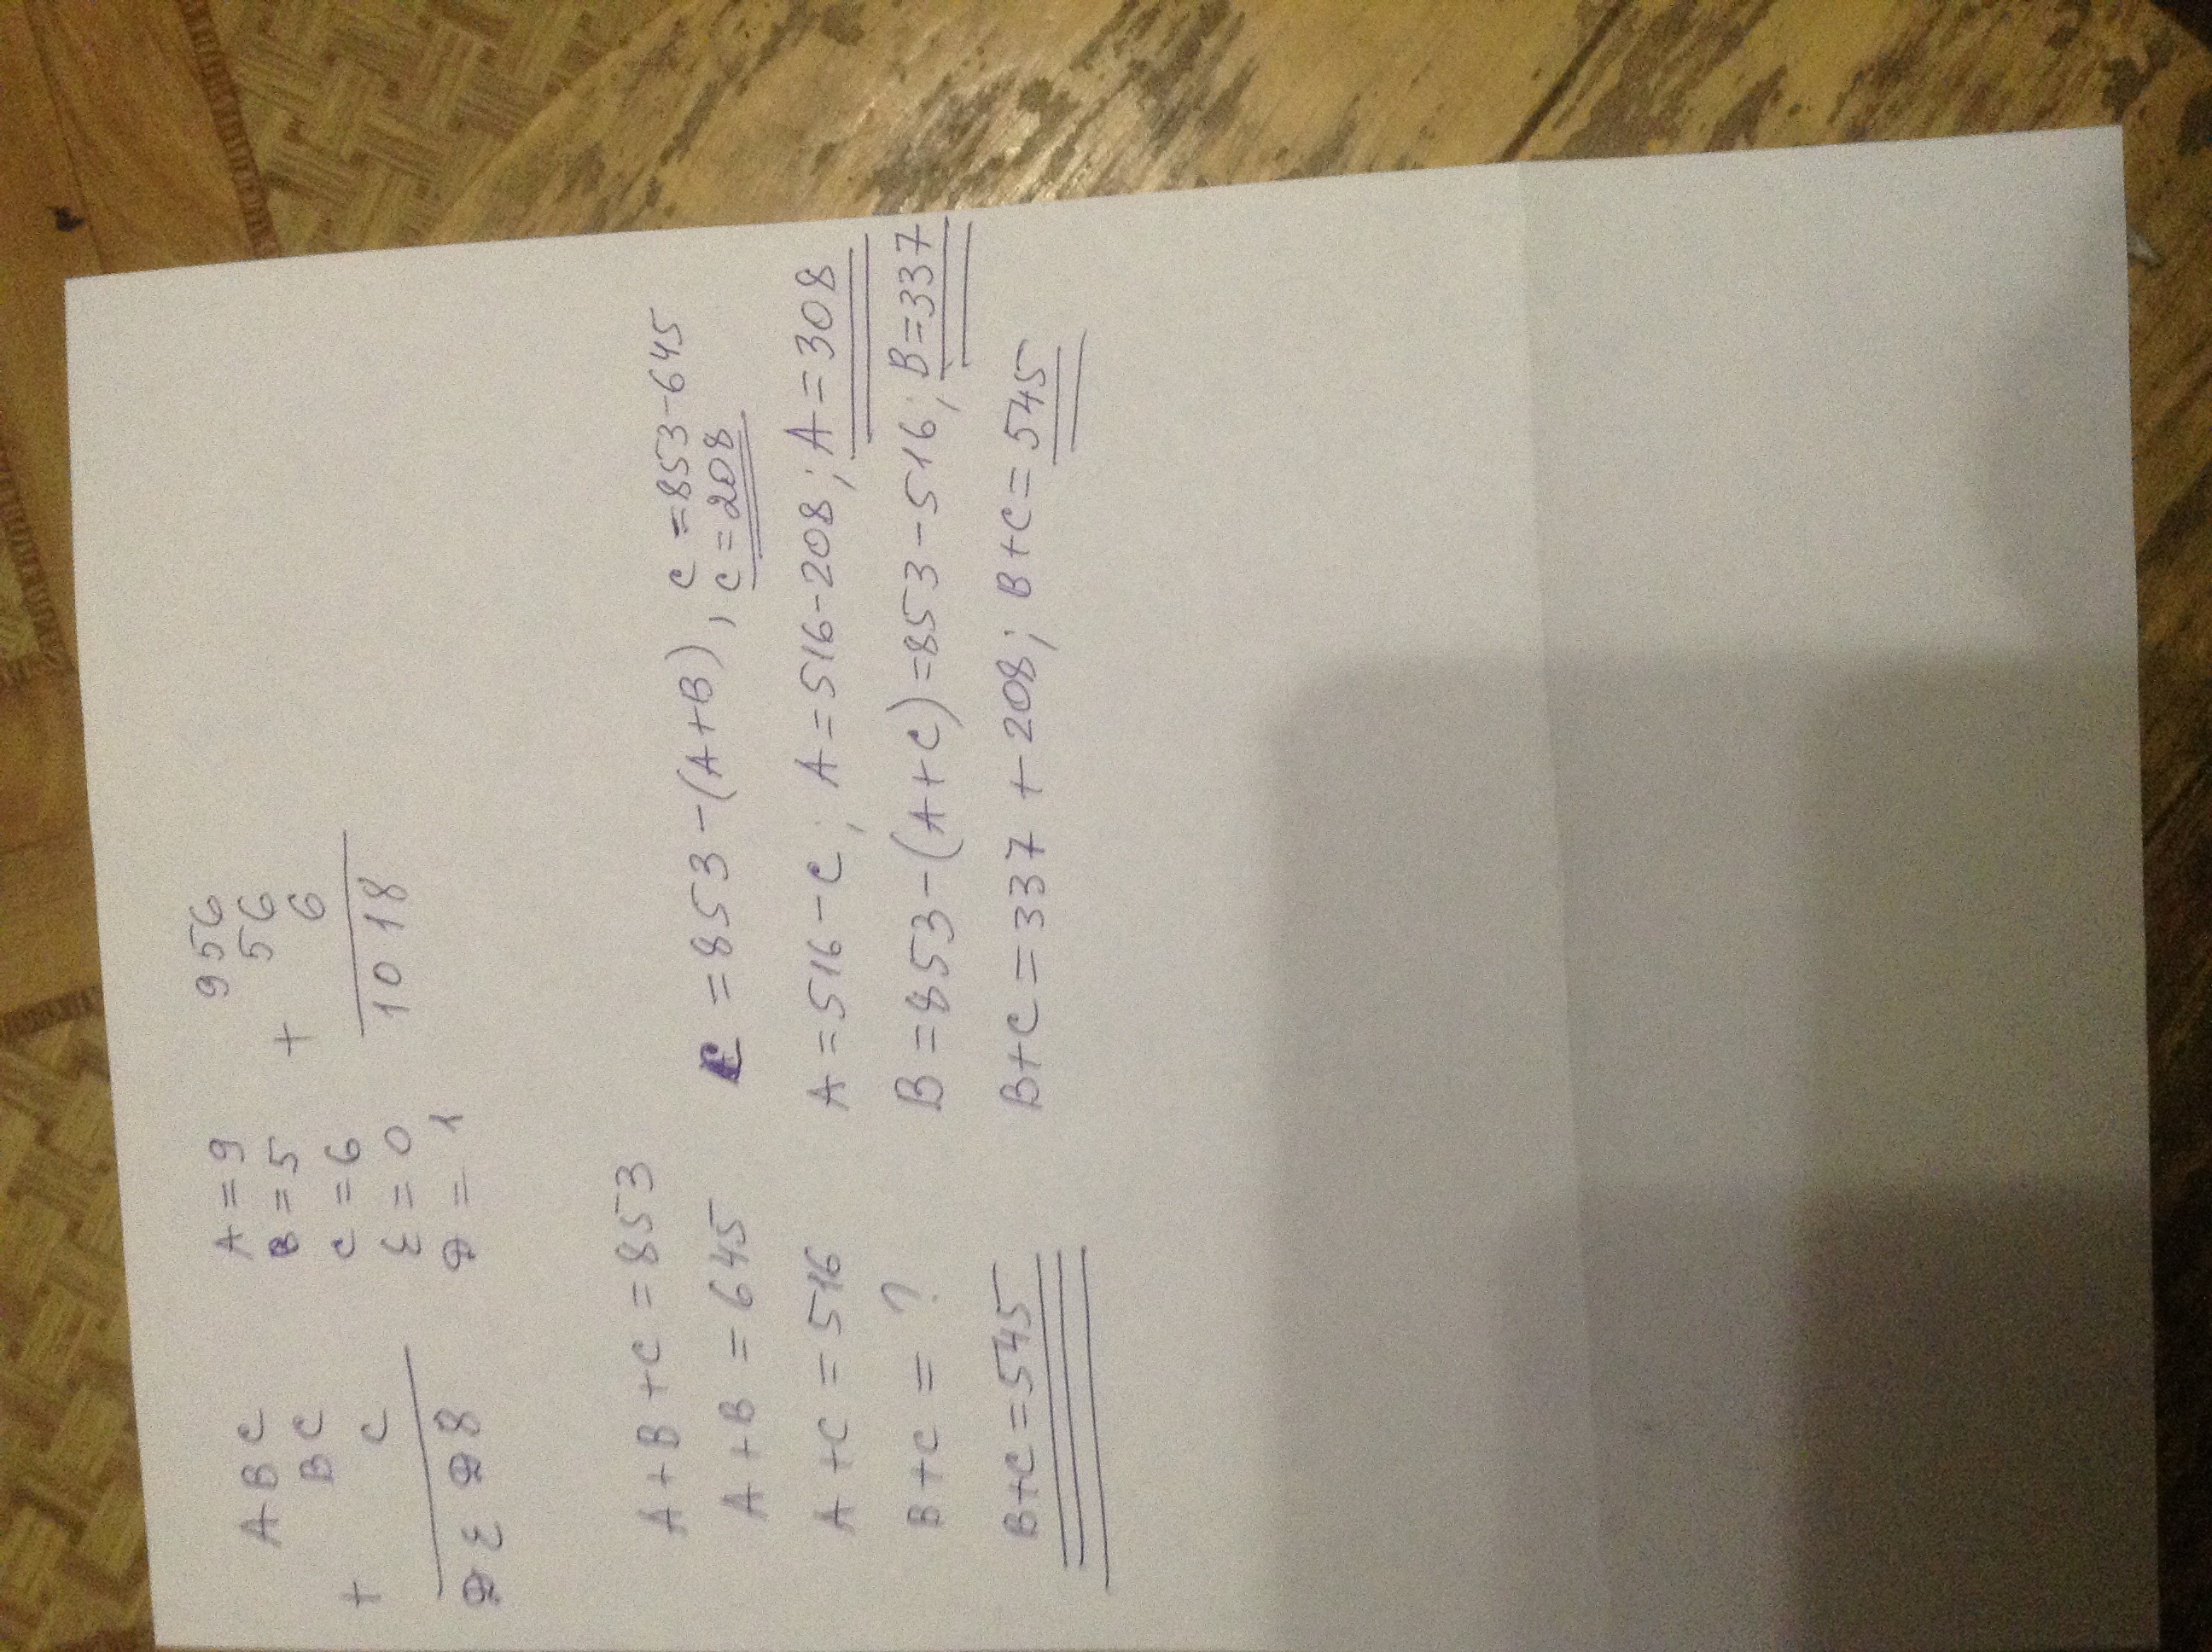 ABC
BC
+
C
ДЕД8
A=9
B=5
C=6
E=0
Д=1
956
56
+
6
1018
A+B+C=853
A+B=645
A+C=516
B+C=?
B+C=545
C=853-(A+B), C=853-645
C=208
A=516-C; A=516-208; A=308
B=853-(A+C)=853-516; B=337
B+C=337+208; B+C=545